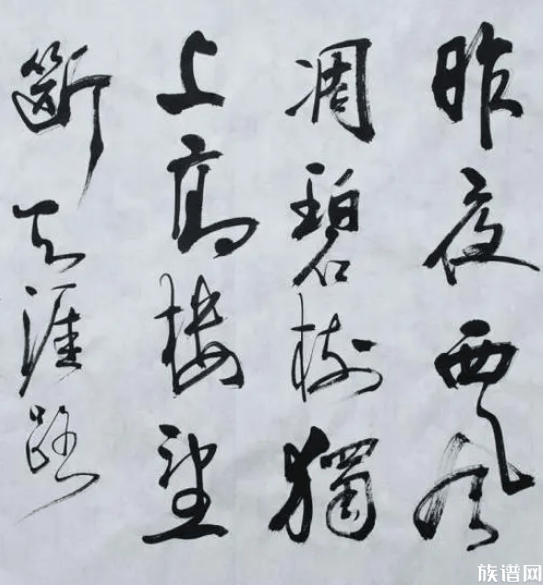 昨夜西風
凋碧樹獨
上高樓望
斷天涯路
族谱网